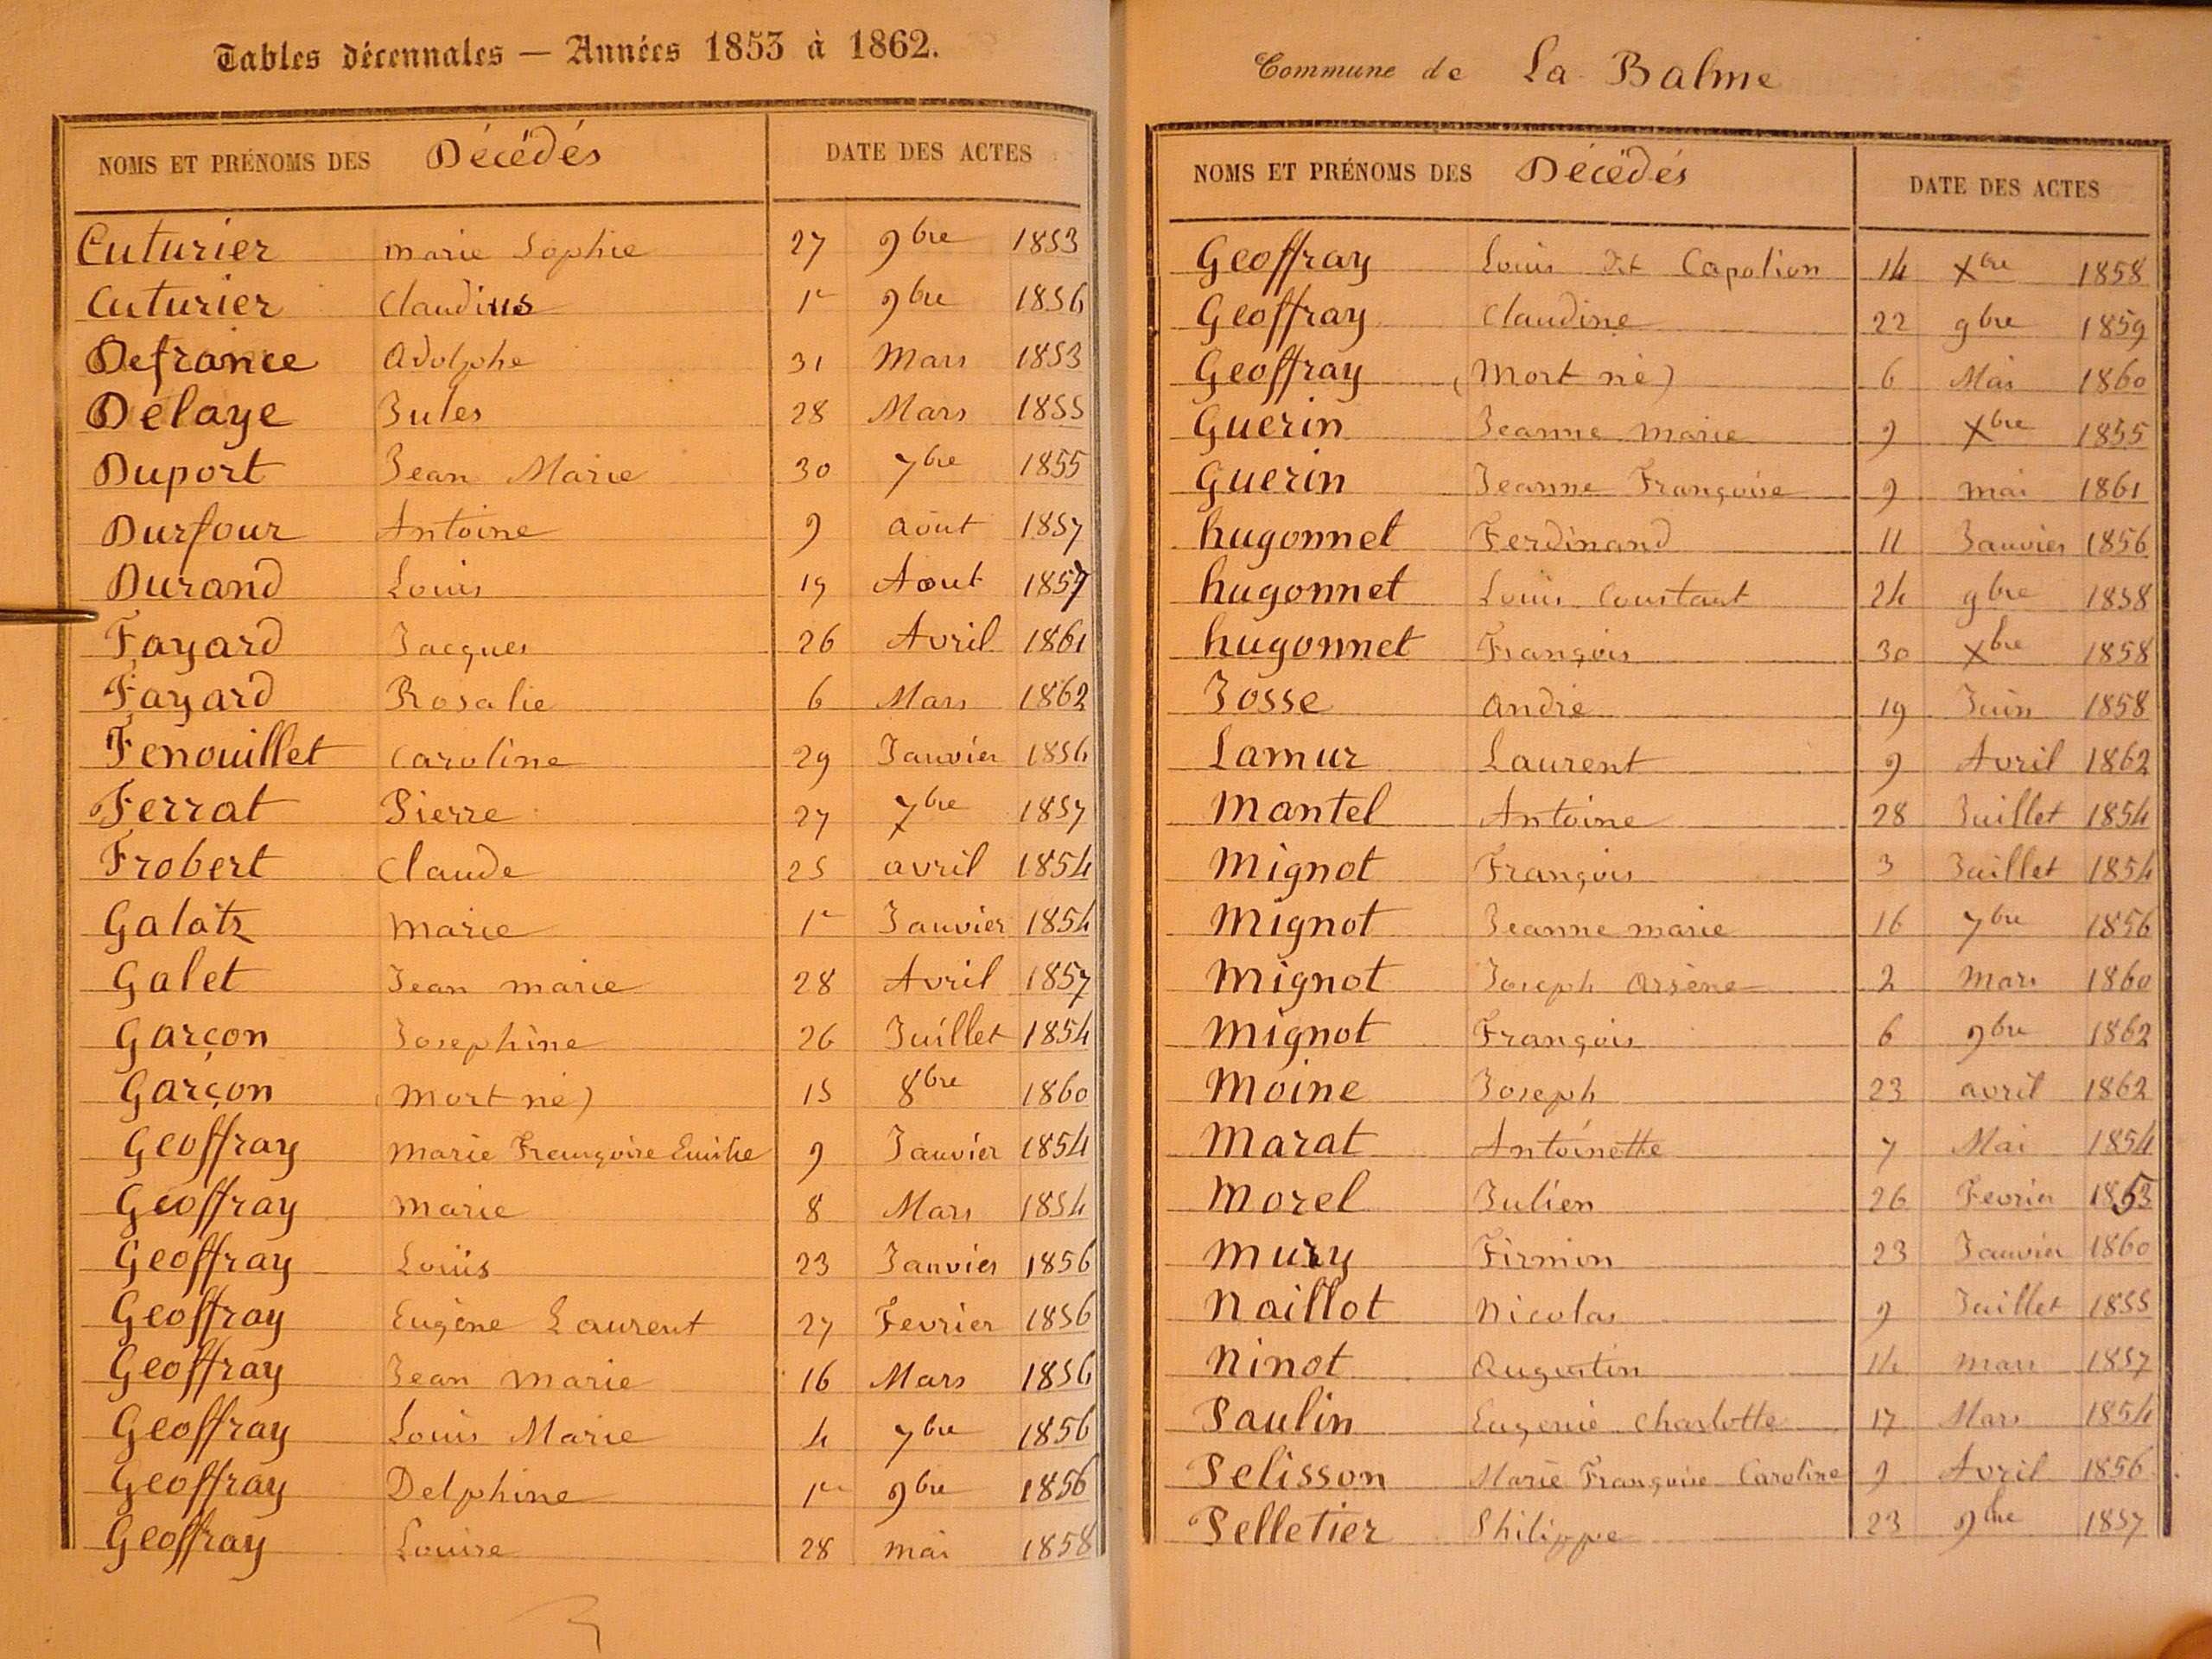 Tables décennales — Années 1853 à 1862.
NOMS ET PRÉNOMS DES Décédés DATE DES ACTES
Cuturier marie Sophie 27 9bre 1853
Cuturier Claudius 1r 9bre 1856
Defrance Adolphe 31 Mars 1853
Délaye Jules 28 Mars 1855
Duport Jean Marie 30 7bre 1855
Durfour Antoine 9 août 1857
Durand Louis 19 Aout 1857
Fayard Jacques 26 Avril 1861
Fayard Rosalie 6 Mars 1862
Fenouillet Caroline 29 Janvier 1856
Ferrat Pierre 27 7bre 1857
Frobert Claude 25 avril 1854
Galatz Marie 1r Janvier 1854
Galet Jean marie 28 Avril 1857
Garçon Josephine 26 Juillet 1854
Garçon (Mort né) 15 8bre 1860
Geoffray Marie Françoise Emilie 9 Janvier 1854
Geoffray Marie 8 Mars 1854
Geoffray Louis 23 Janvier 1856
Geoffray Eugène Laurent 27 Fevrier 1856
Geoffray Jean Marie 16 Mars 1856
Geoffray Louis Marie 4 7bre 1856
Geoffray Delphine 1r 9bre 1856
Geoffray Louise 28 mai 1858
Commune de La Balme
NOMS ET PRÉNOMS DES Décédés DATE DES ACTES
Geoffray Louis dit Capolion 14 Xbre 1858
Geoffray Claudine 22 9bre 1859
Geoffray (Mort né) 6 Mai 1860
Guerin Jeanne marie 9 Xbre 1855
Guerin Jeanne Françoise 9 mai 1861
hugonnet Ferdinand 11 Janvier 1856
hugonnet Louis Constant 24 9bre 1858
hugonnet François 30 Xbre 1858
Josse André 19 Juin 1858
Lamur Laurent 9 Avril 1862
Mantel Antoine 28 Juillet 1854
Mignot François 3 Juillet 1854
Mignot Jeanne marie 16 7bre 1856
Mignot Joseph Arsène 2 Mars 1860
Mignot François 6 9bre 1862
Moine Joseph 23 avril 1862
Marat Antoinette 7 Mai 1854
Morel Julien 26 Fevrier 1853
Mury Firmin 23 Janvier 1860
Naillot Nicolas 9 Juillet 1855
Ninot Augustin 14 mars 1857
Paulin Eugenie Charlotte 17 Mars 1854
Pelisson Marie Françoise Caroline 9 Avril 1856
Pelletier Philippe 23 9bre 1857